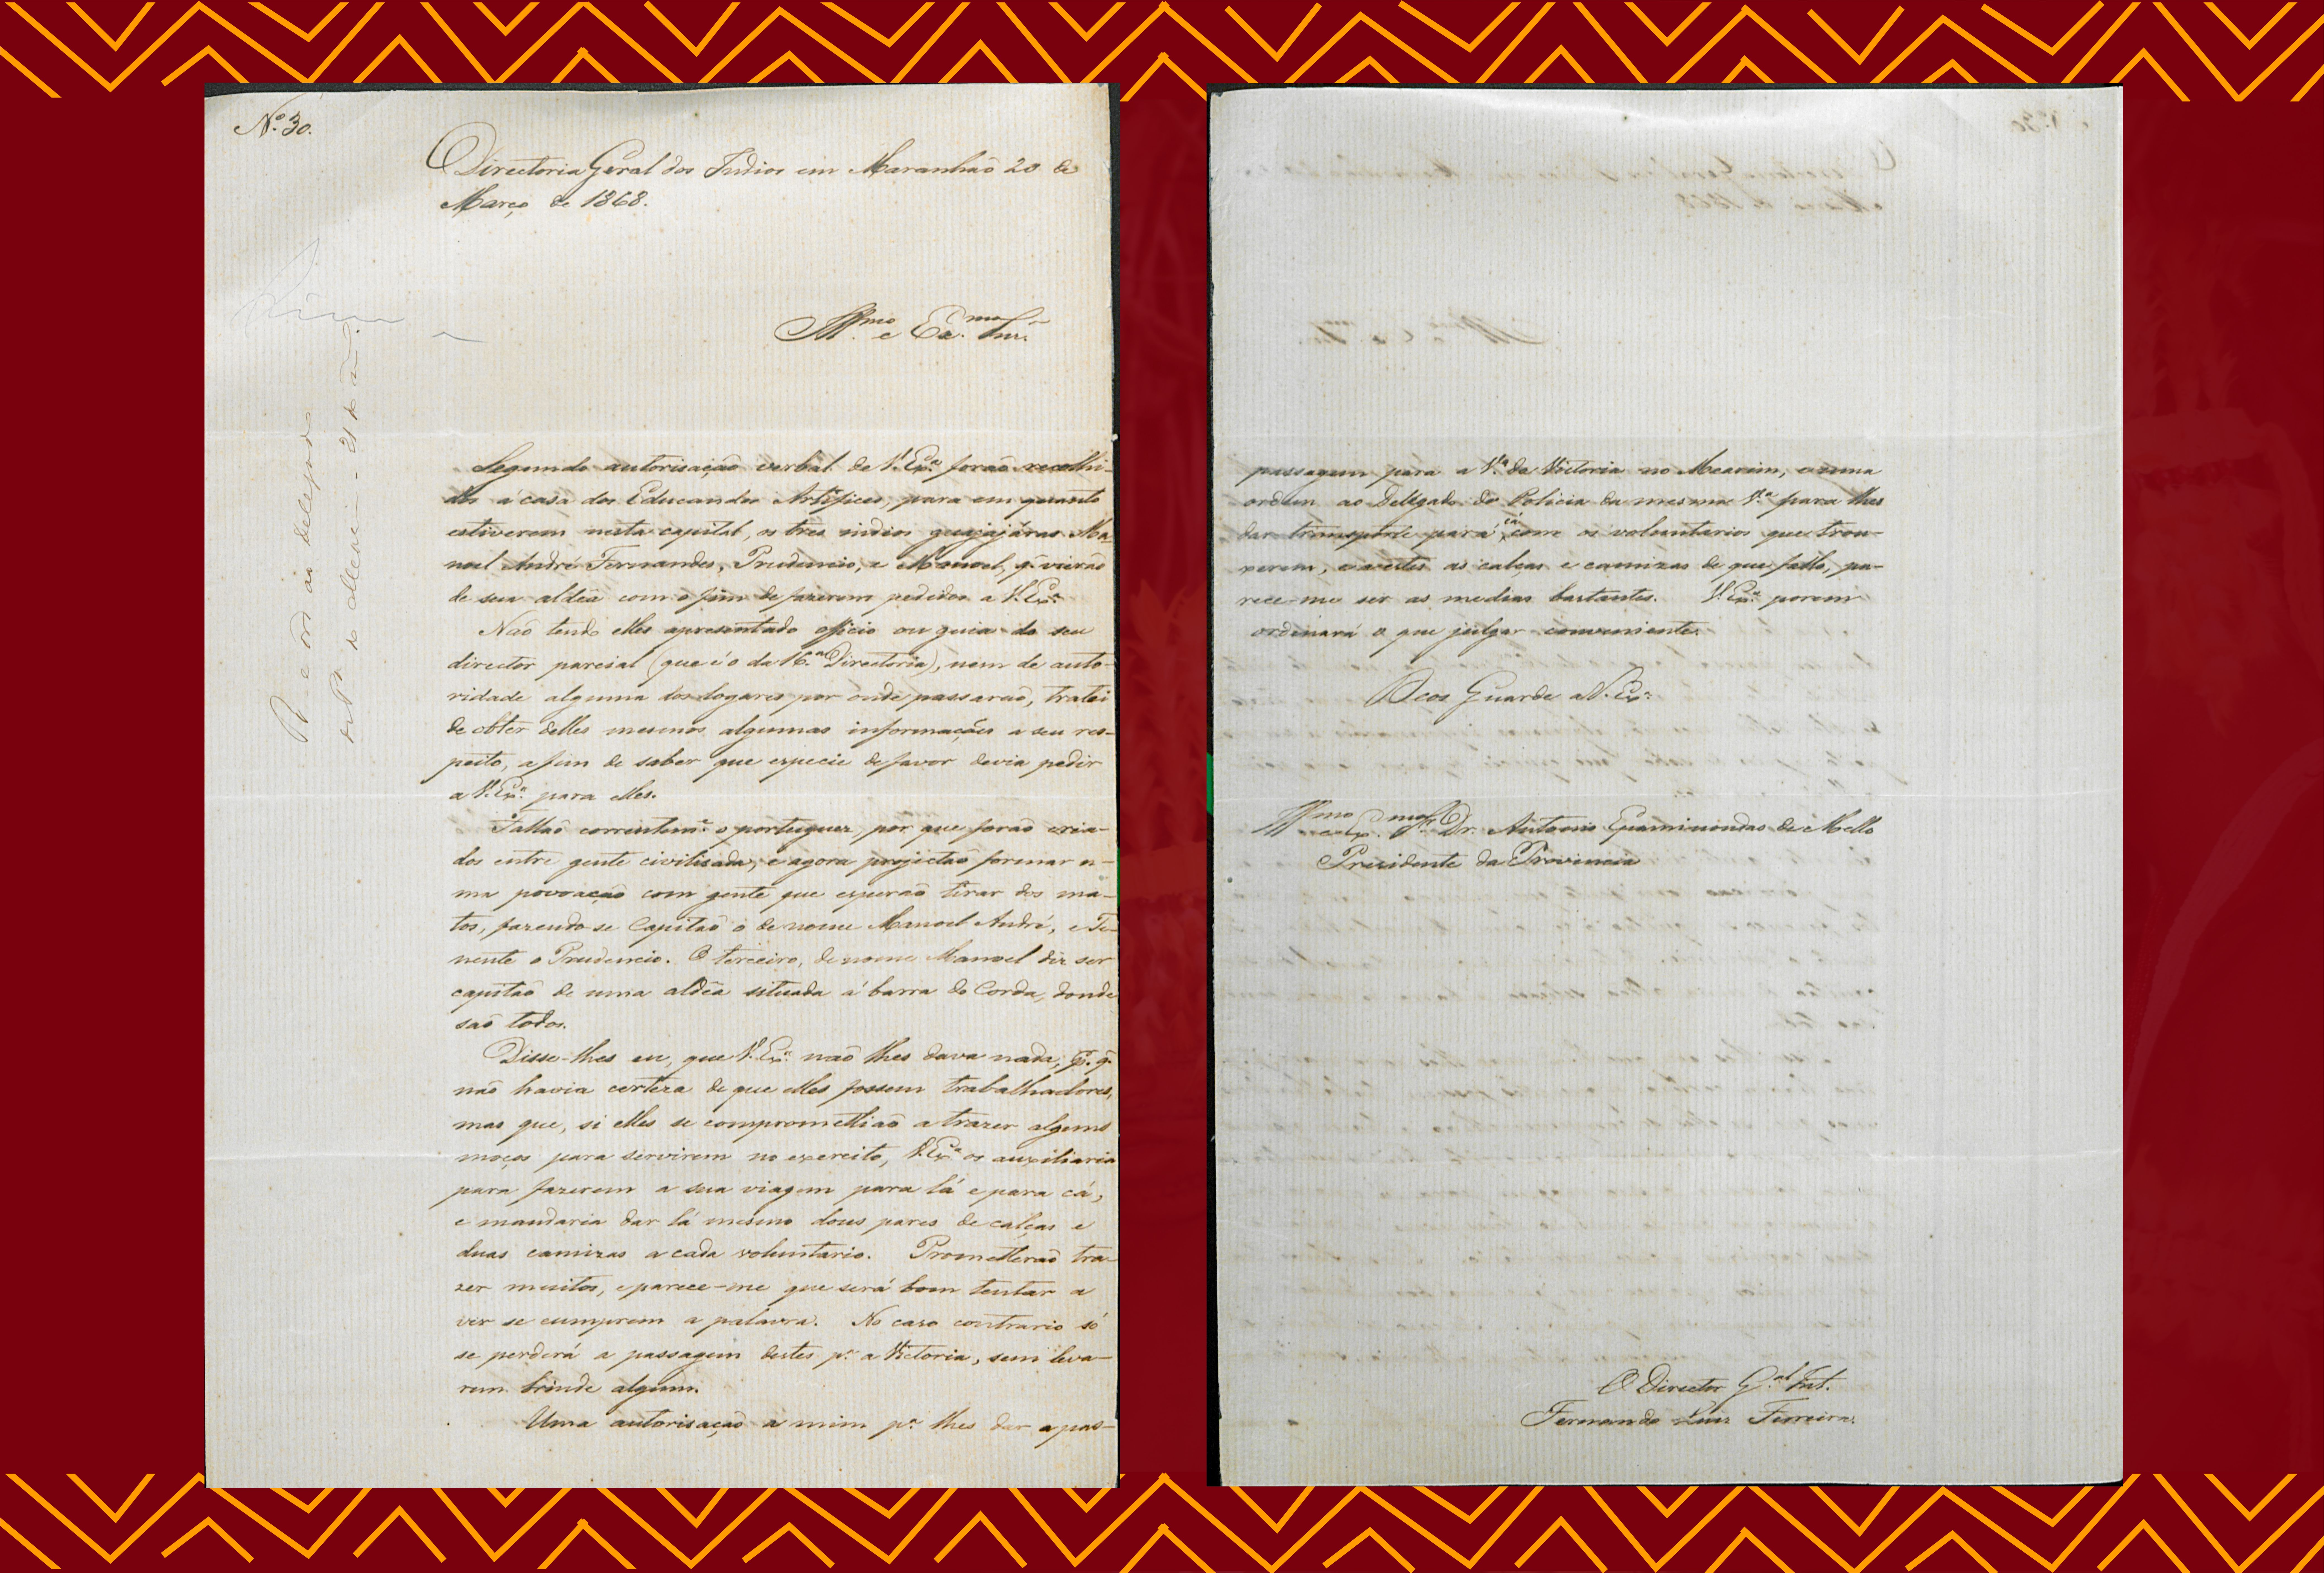 Nº 30.
Directoria Geral dos Indios em Maranhão 20 de
Março de 1868.
Illmo. e Exmo. Snr.
Segundo autorisação verbal de V. Exª. forão recolhi-
dos á casa dos Educandos Artifices, para em quanto
estiverem nesta capital, os tres indios guajajáras Ma-
noel André Fernandes, Prudencio, e Manoel, q. vierão
de sua aldêa com o fim de fazerem pedidos a V. Exª.
Não tendo elles apresentado officio ou guia do seu
director parcial (que é o da 16.ª Directoria), nem de auto-
ridade alguma dos logares por onde passarão, tratei
de obter delles mesmos algumas informações a seu res-
peito, a fim de saber que especie de favor devia pedir
a V. Exª. para elles.
Fallão correntemᵉ. o portuguez, por que forão cria-
dos entre gente civilisada, e agora projectão formar u-
ma povoação com gente que esperão tirar dos ma-
tos, fazendo-se Capitão o de nome Manoel André, e Te-
nente o Prudencio. O terceiro, de nome Manoel diz ser
capitão de uma aldêa situada á barra do Corda, donde
são todos.
Disse-lhes eu, que V. Exª. não lhes dava nada, pr. q.
não havia certeza de que elles fossem trabalhadores,
mas que, si elles se compromettião a trazer alguns
moços para servirem no exercito, V. Exª. os auxiliaria
para fazerem a sua viagem para lá e para cá,
e mandaria dar lá mesmo dous pares de calças e
duas camizas a cada voluntario. Prometterão tra-
zer muitos, e parece-me que será bom tentar a
ver se cumprem a palavra. No caso contrario só
se perderá a passagem destes pª. a Victoria, sem leva-
rem brinde algum.
Uma autorisação a mim pª. lhes dar a pas-
Sim
P. e ord. ao delegado
21 de
passagem para a Vª. da Victoria no Mearim, e uma
ordem ao Delegado de Policia da mesma Vª. para lhes
dar transporte para cá com os voluntarios que trou-
xerem, e a estes as calças e camizas de que fallo, pa-
rece-me ser as medidas bastantes. V. Exª. porem
ordenará o que julgar conveniente.
Deos Guarde a V. Exª.
Illmo. e Exmo. Sr. Dr. Antonio Epaminondas de Mello
Presidente da Provincia
O Director G.al Int.
Fernando Luiz Ferreira.